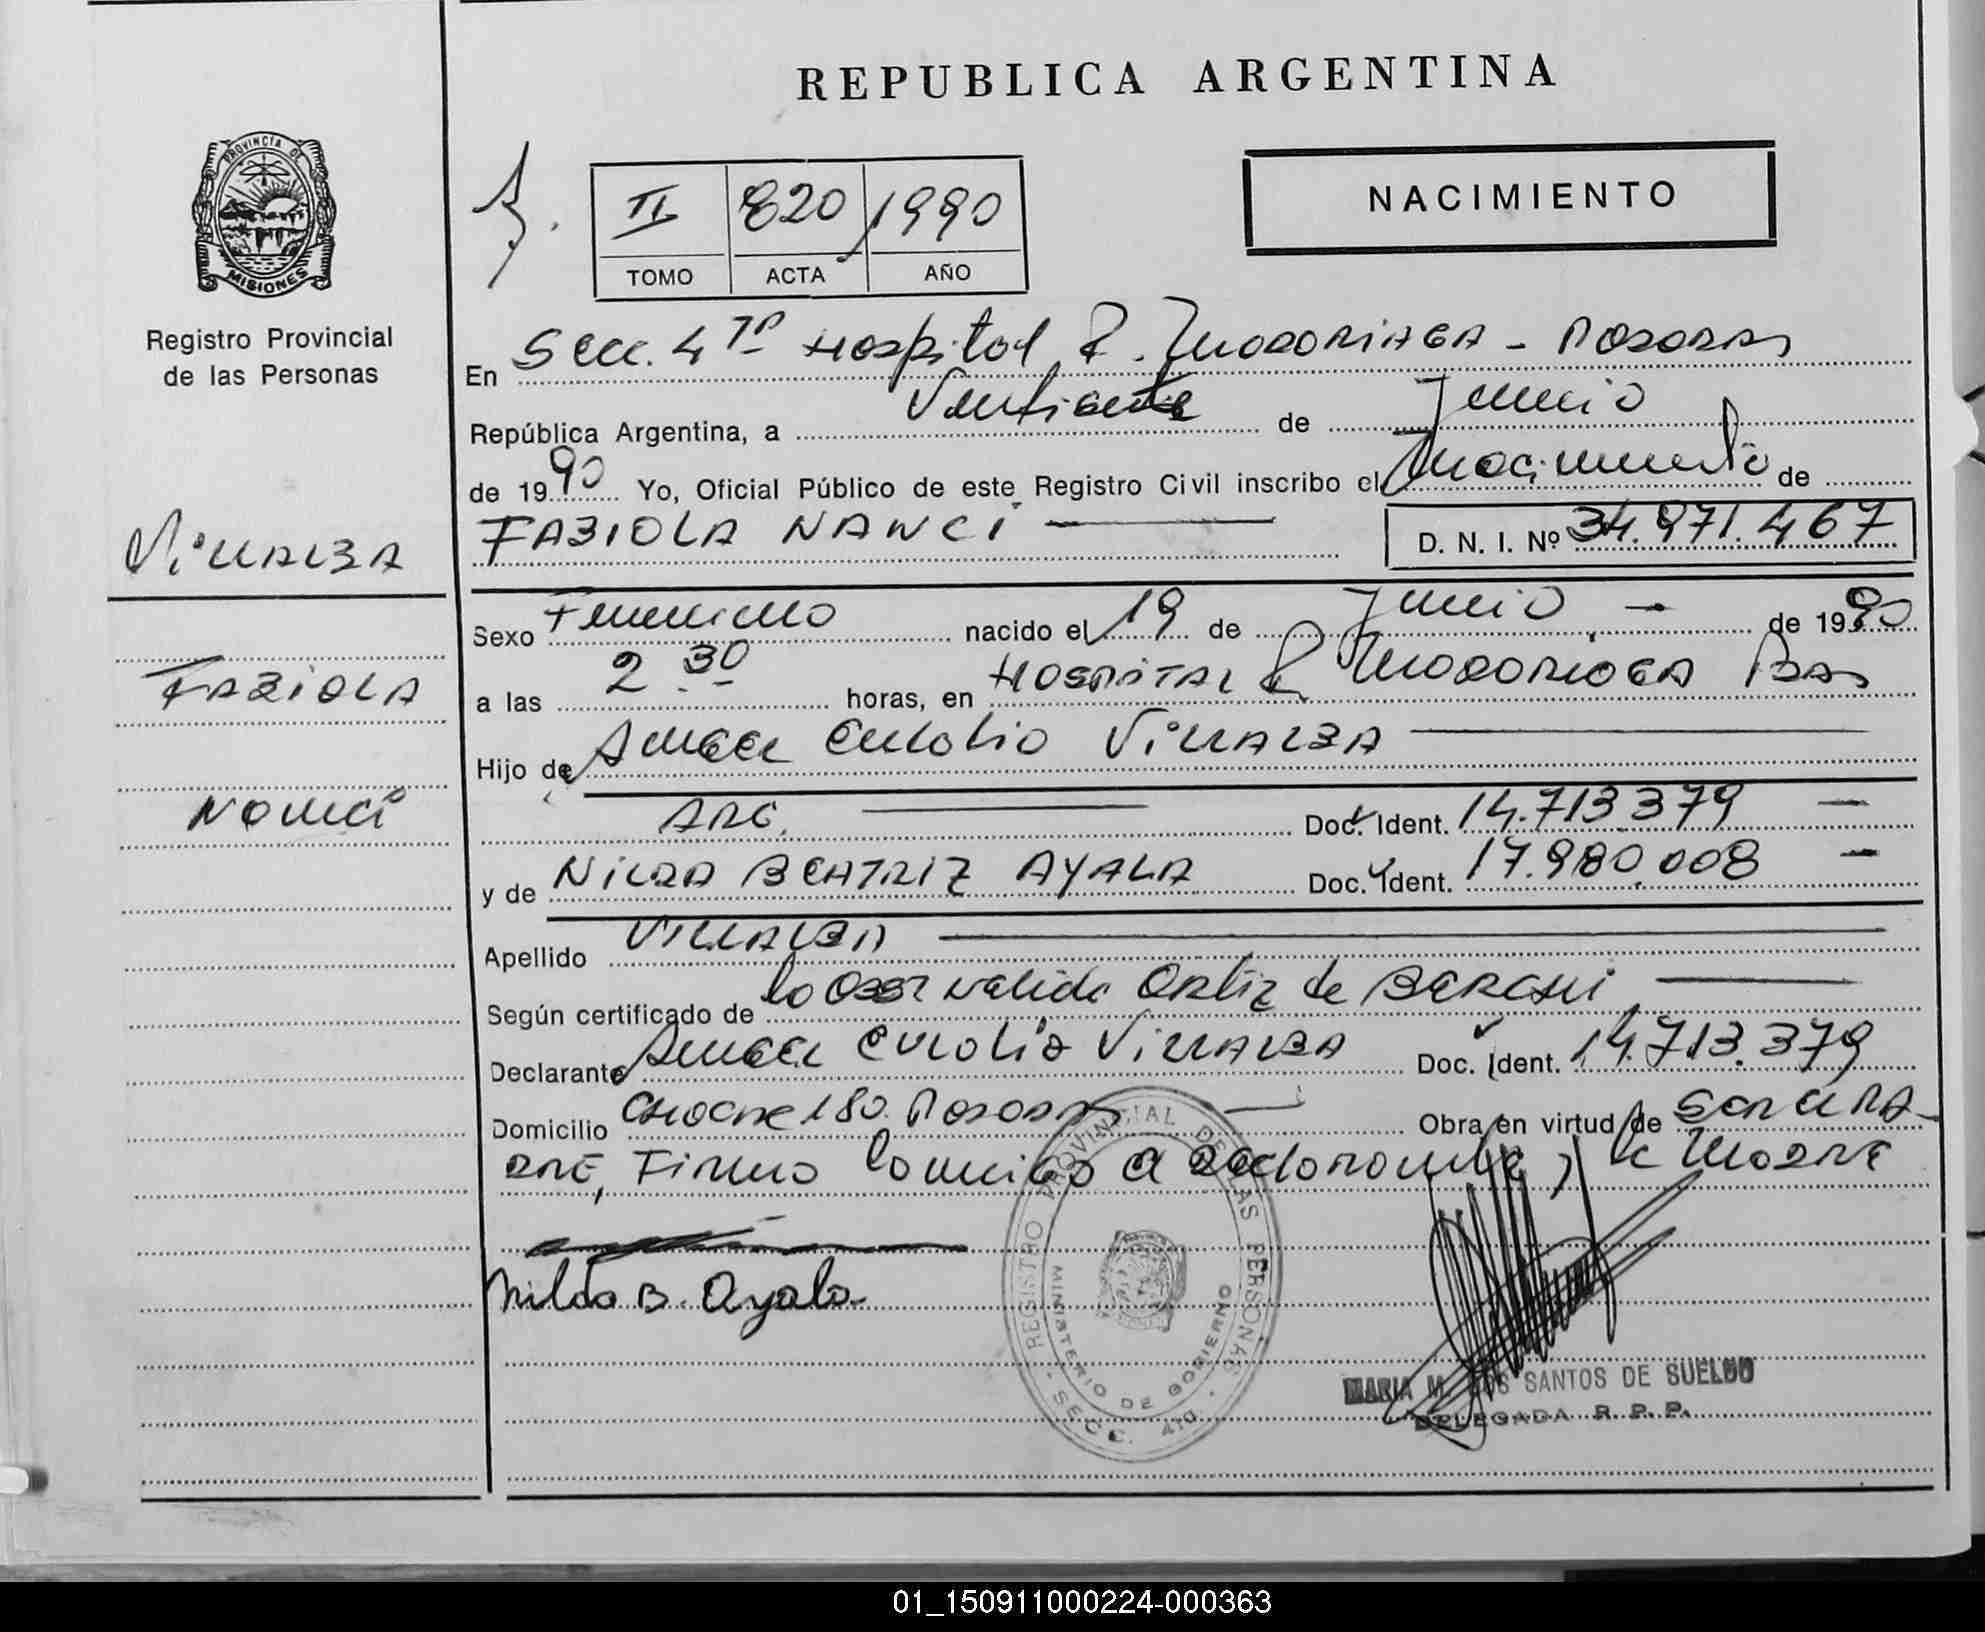 REPUBLICA ARGENTINA
PROVINCIA DE
MISIONES
Registro Provincial
de las Personas
II 820 1990
TOMO ACTA AÑO
NACIMIENTO
En Secc. 4ta Hospital R. Madariaga - Posadas
República Argentina, a de Junio
de 1990 Yo, Oficial Público de este Registro Civil inscribo el Nacimiento de
FABIOLA NANCI D. N. I. Nº 34.971.467
Villalba
Fabiola
Nanci
Sexo Femenino nacido el 19 de Junio de 1990
a las 2 30 horas, en Hospital R Madariaga Pdas
Hijo de Villalba
Arg. Doc. Ident. 14.713.379
y de Nilda Beatriz Ayala Doc. Ident. 17.980.008
Apellido Villalba
Según certificado de la Ortiz de
Declarante Villalba Doc. Ident. 14.713.379
Domicilio 180 Posadas Obra en virtud de ser el pa-
dre, Firma conmigo el declarante y la madre
Nilda B. Ayala
REGISTRO PROVINCIAL DE LAS PERSONAS
MINISTERIO DE GOBIERNO
SECC. 4ta.
MARIA M. DOS SANTOS DE SUELDO
DELEGADA R. P. P.
01_150911000224-000363